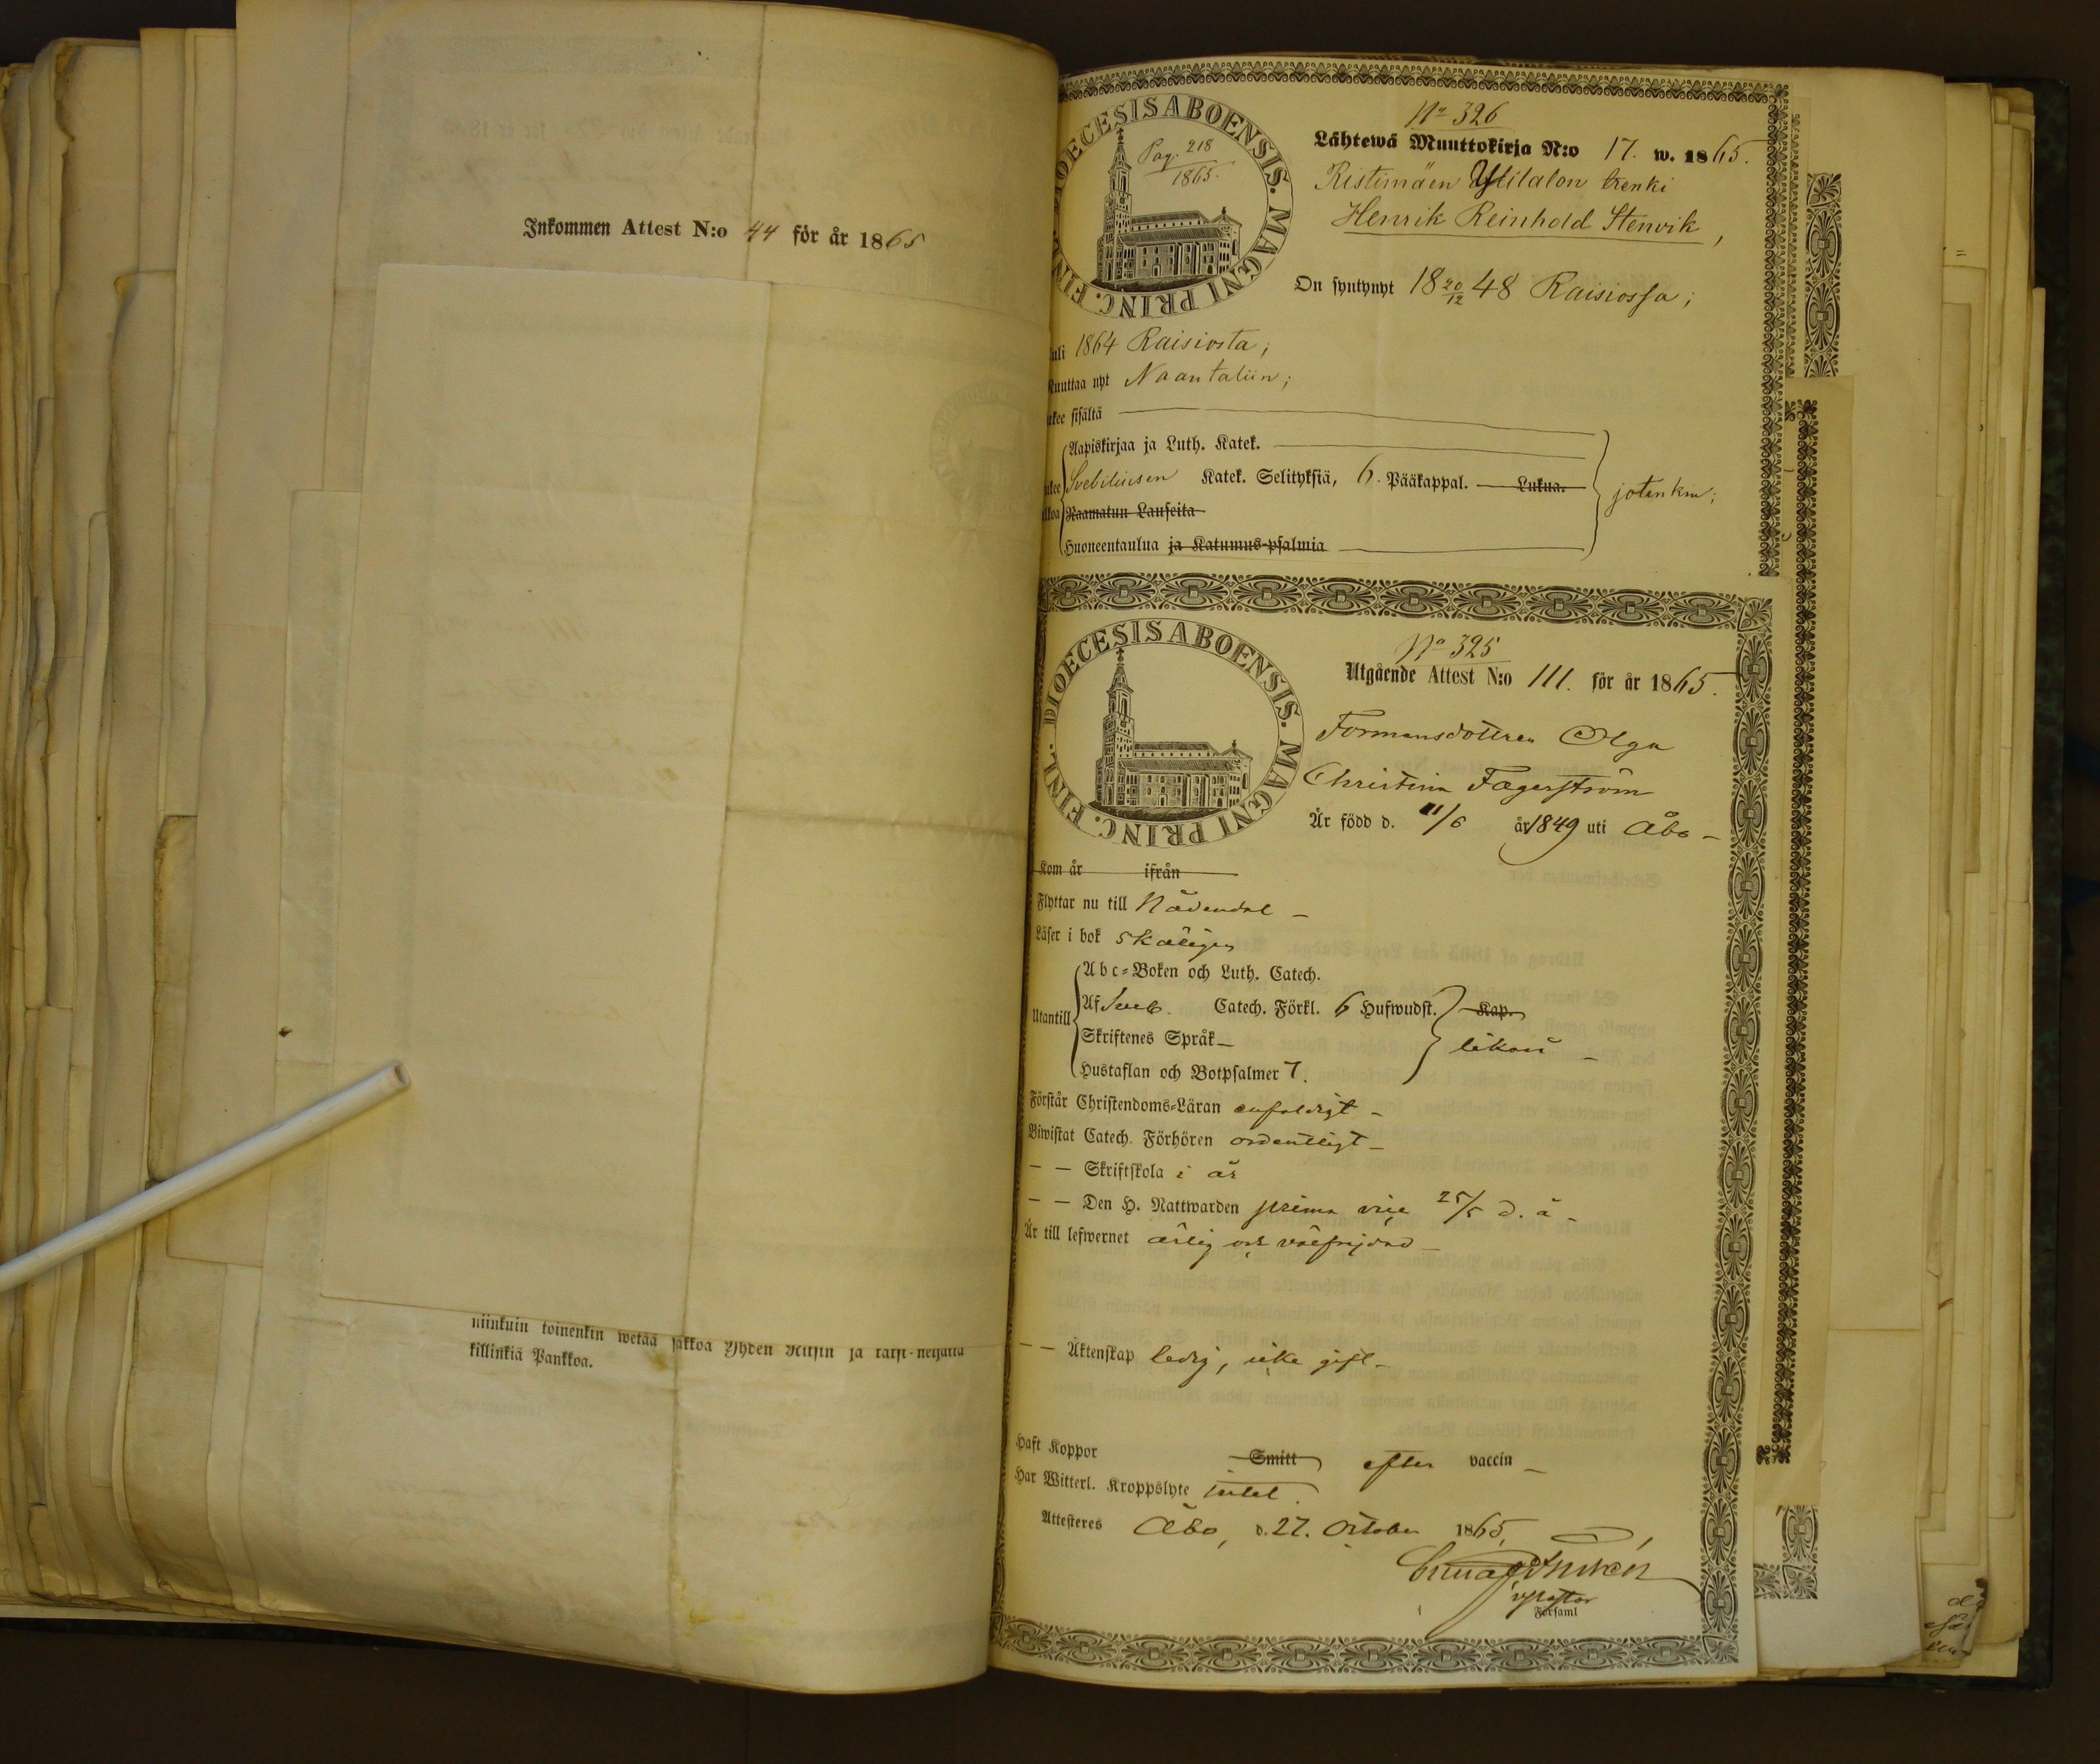 Inkommen Attest N:o 44 för år 1865
niinkuin toinenkin wetää sakkoa Yhden
killinkiä Pankkoa.
DIOECESIS ABOENSIS. MAGNI PRINC. FINL.
Pag. 218
1865.
No 326
Lähtewä Muuttokirja N:o 17. w. 1865.
Ristimäen Ylitalon trenki
Henrik Reinhold Stenvik,
On syntynyt 18 20/12 48 Raisiossa;
uli 1864 Raisiosta;
uuttaa nyt Naantaliin;
ukee sisältä
Aapiskirjaa ja Luth. Katek.
ukee Svebiliusen Katek. Selityksiä, 6. Pääkappal. Lukua. jotenkin;
lkoa Raamatun Lauseita
Huoneentaulua ja Katumus-psalmia
DIOECESIS ABOENSIS. MAGNI PRINC. FINL.
No 325
Utgående Attest N:o 111. för år 1865.
Formansdottren Olga
Christina Fagerström
Är född d. 11/6 år 1849 uti Åbo -
Kom år ifrån
Flyttar nu till Nådendal -
Läser i bok skäligen
Abc-Boken och Luth. Catech.
Utantill Af Sveb. Catech. Förkl. 6 Hufwudst. Kap.
Skriftenes Språk - likaså -
Hustaflan och Botpsalmer 7.
Förstår Christendoms-Läran enfaldigt -
Biwistat Catech. Förhören ordentligt -
- - Skriftskola i år
- - Den H. Nattwarden prima vice 25/5 d. å -
Är till lefwernet ärlig och välfrejdad -
- - Äktenskap ledig, icke gift -
Haft Koppor Smitt efter vaccin -
Har Witterl. Kroppslyte intet.
Attesteres Åbo, d. 27. October 1865,
v/pastor
Församl